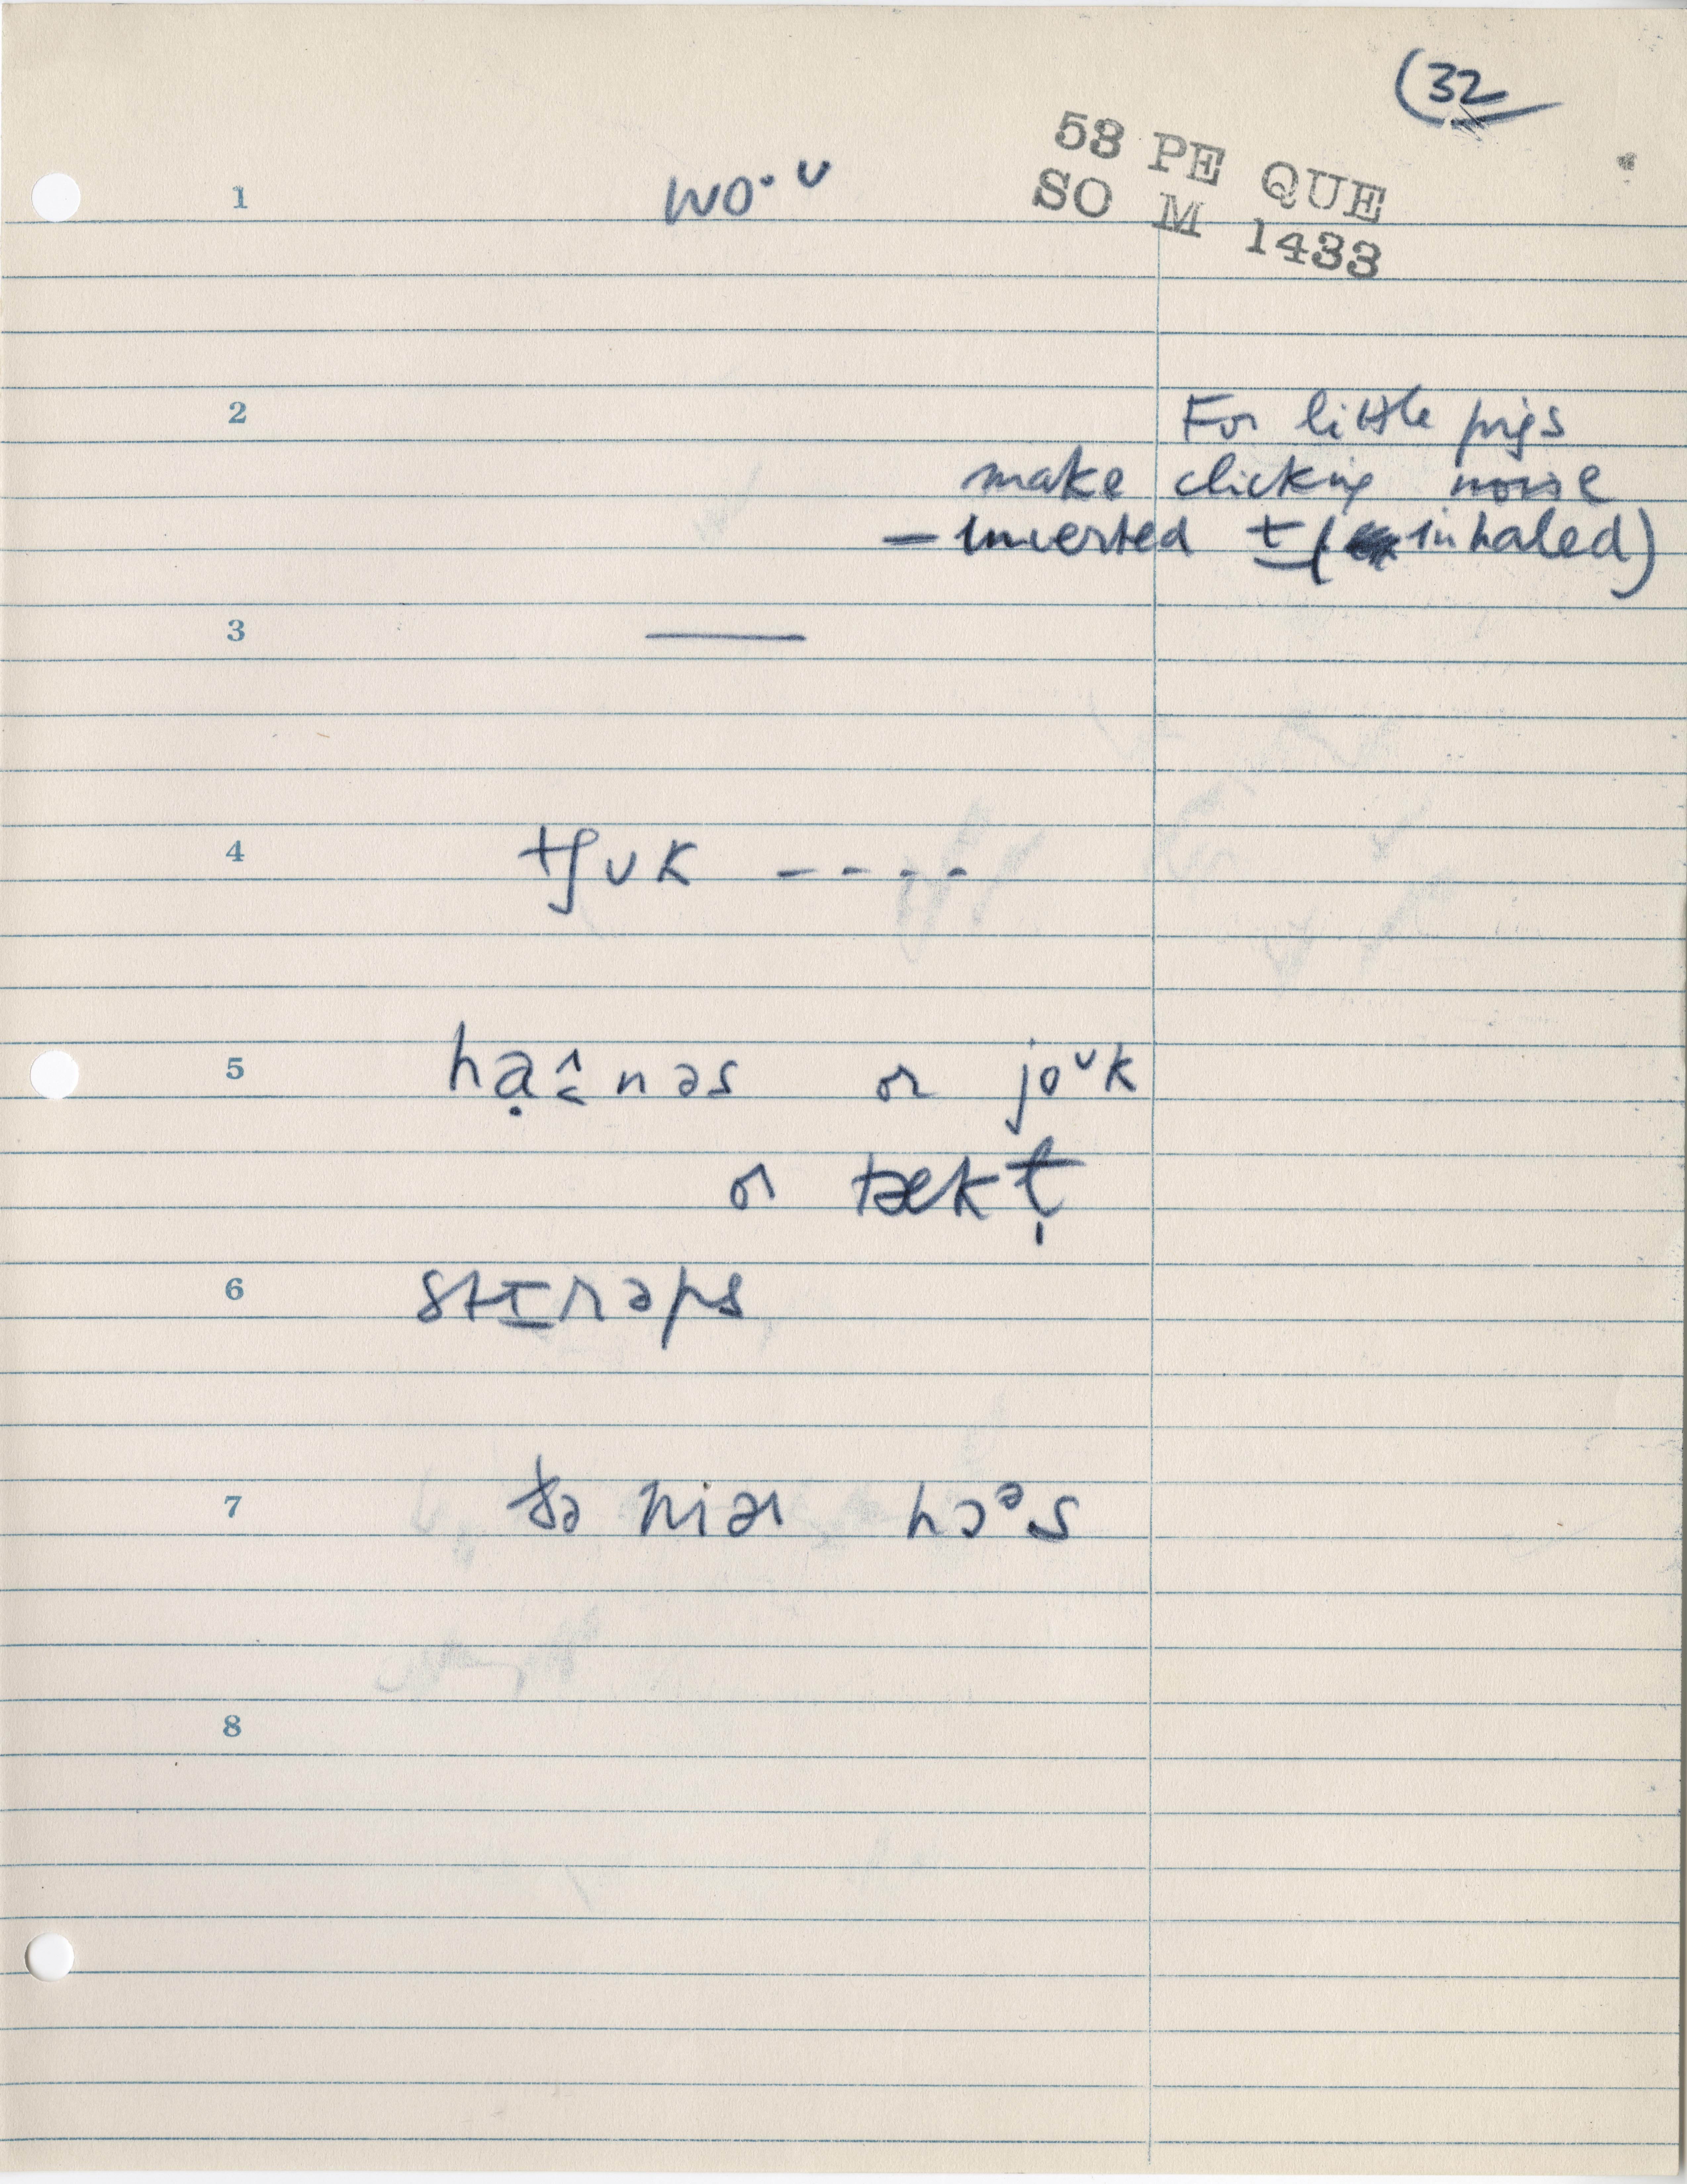 (32
53 PE QUE
SO M 1433
1 wo·ᴜ
2 For little pigs
make clicking noise
— inverted t (inhaled)
3 ——
4 tʃᴜk - - - -
5 hậnəs or joᵘk
or tækṭ
6 stɪrəps
7 nɪər hɔᵊs
8